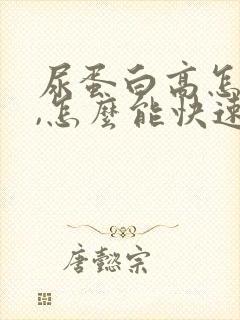 尿蛋白高怎
,怎麼能快速
唐懿宗